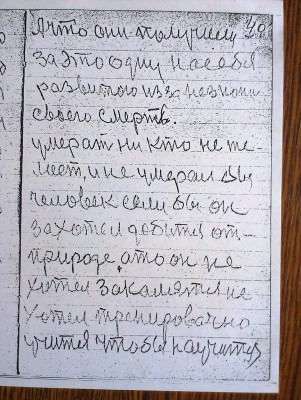 А что они получают 40
за это одну на себя
развитого из за незнани
своего смерть.
умерат ни кто не же-
лает, и не умерал бы
человек если бы он
захотел добится от
природе, а то он не
хотел закалятся не
хотел тренировачно
учится чтобы научится